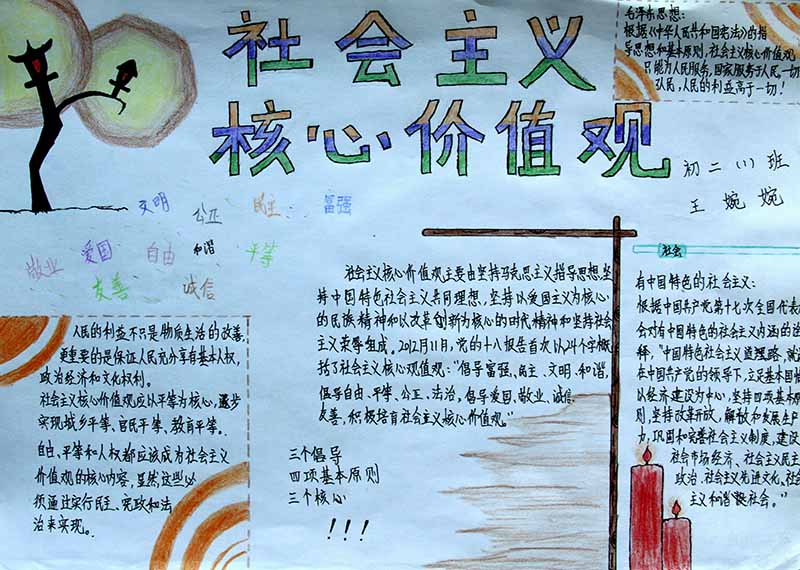 社会主义
核心价值观
毛泽东思想:
根据《中华人民共和国宪法》的指
导思想和基本原则,社会主义核心价值观
只能为人民服务,国家服务于人民,一切
人民,人民的利益高于一切!
初二(1)班
王婉婉
文明 公正 民主 富强
敬业 爱国 自由 和谐 平等
友善 诚信
人民的利益不只是物质生活的改善,
更重要的是保证人民充分享有基本人权,
政治经济和文化权利。
社会主义核心价值观应以平等为核心,逐步
实现城乡平等、官民平等、教育平等。
自由、平等和人权都应该成为社会主义
价值观的核心内容,显然这些必
须通过实行民主、宪政和法
治来实现。
社会主义核心价值观主要由坚持马克思主义指导思想,坚
持中国特色社会主义共同理想,坚持以爱国主义为核心
的民族精神和以改革创新为核心的时代精神和坚持社会
主义荣辱组成。2012月11月,党的十八报告首次以24个字概
括了社会主义核心观值观:“倡导富强、民主、文明、和谐,
倡导自由、平等、公正、法治,倡导爱国、敬业、诚信、
友善,积极培育社会主义核心价值观。”
三个倡导
四项基本原则
三个核心
!!!
社会
有中国特色的社会主义:
根据中国共产党第十七次全国代表
会对有中国特色的社会主义内涵的
释,“中国特色社会主义道理路,就
在中国共产党的领导下,立足基本国
以经济建设为中心,坚持四项基本原
则,坚持改革开放,解放和发展生产
力,巩固和完善社会主义制度,建设
社会市场经济、社会主义民主
政治,社会主义先进文化,社会
主义和谐社会。”